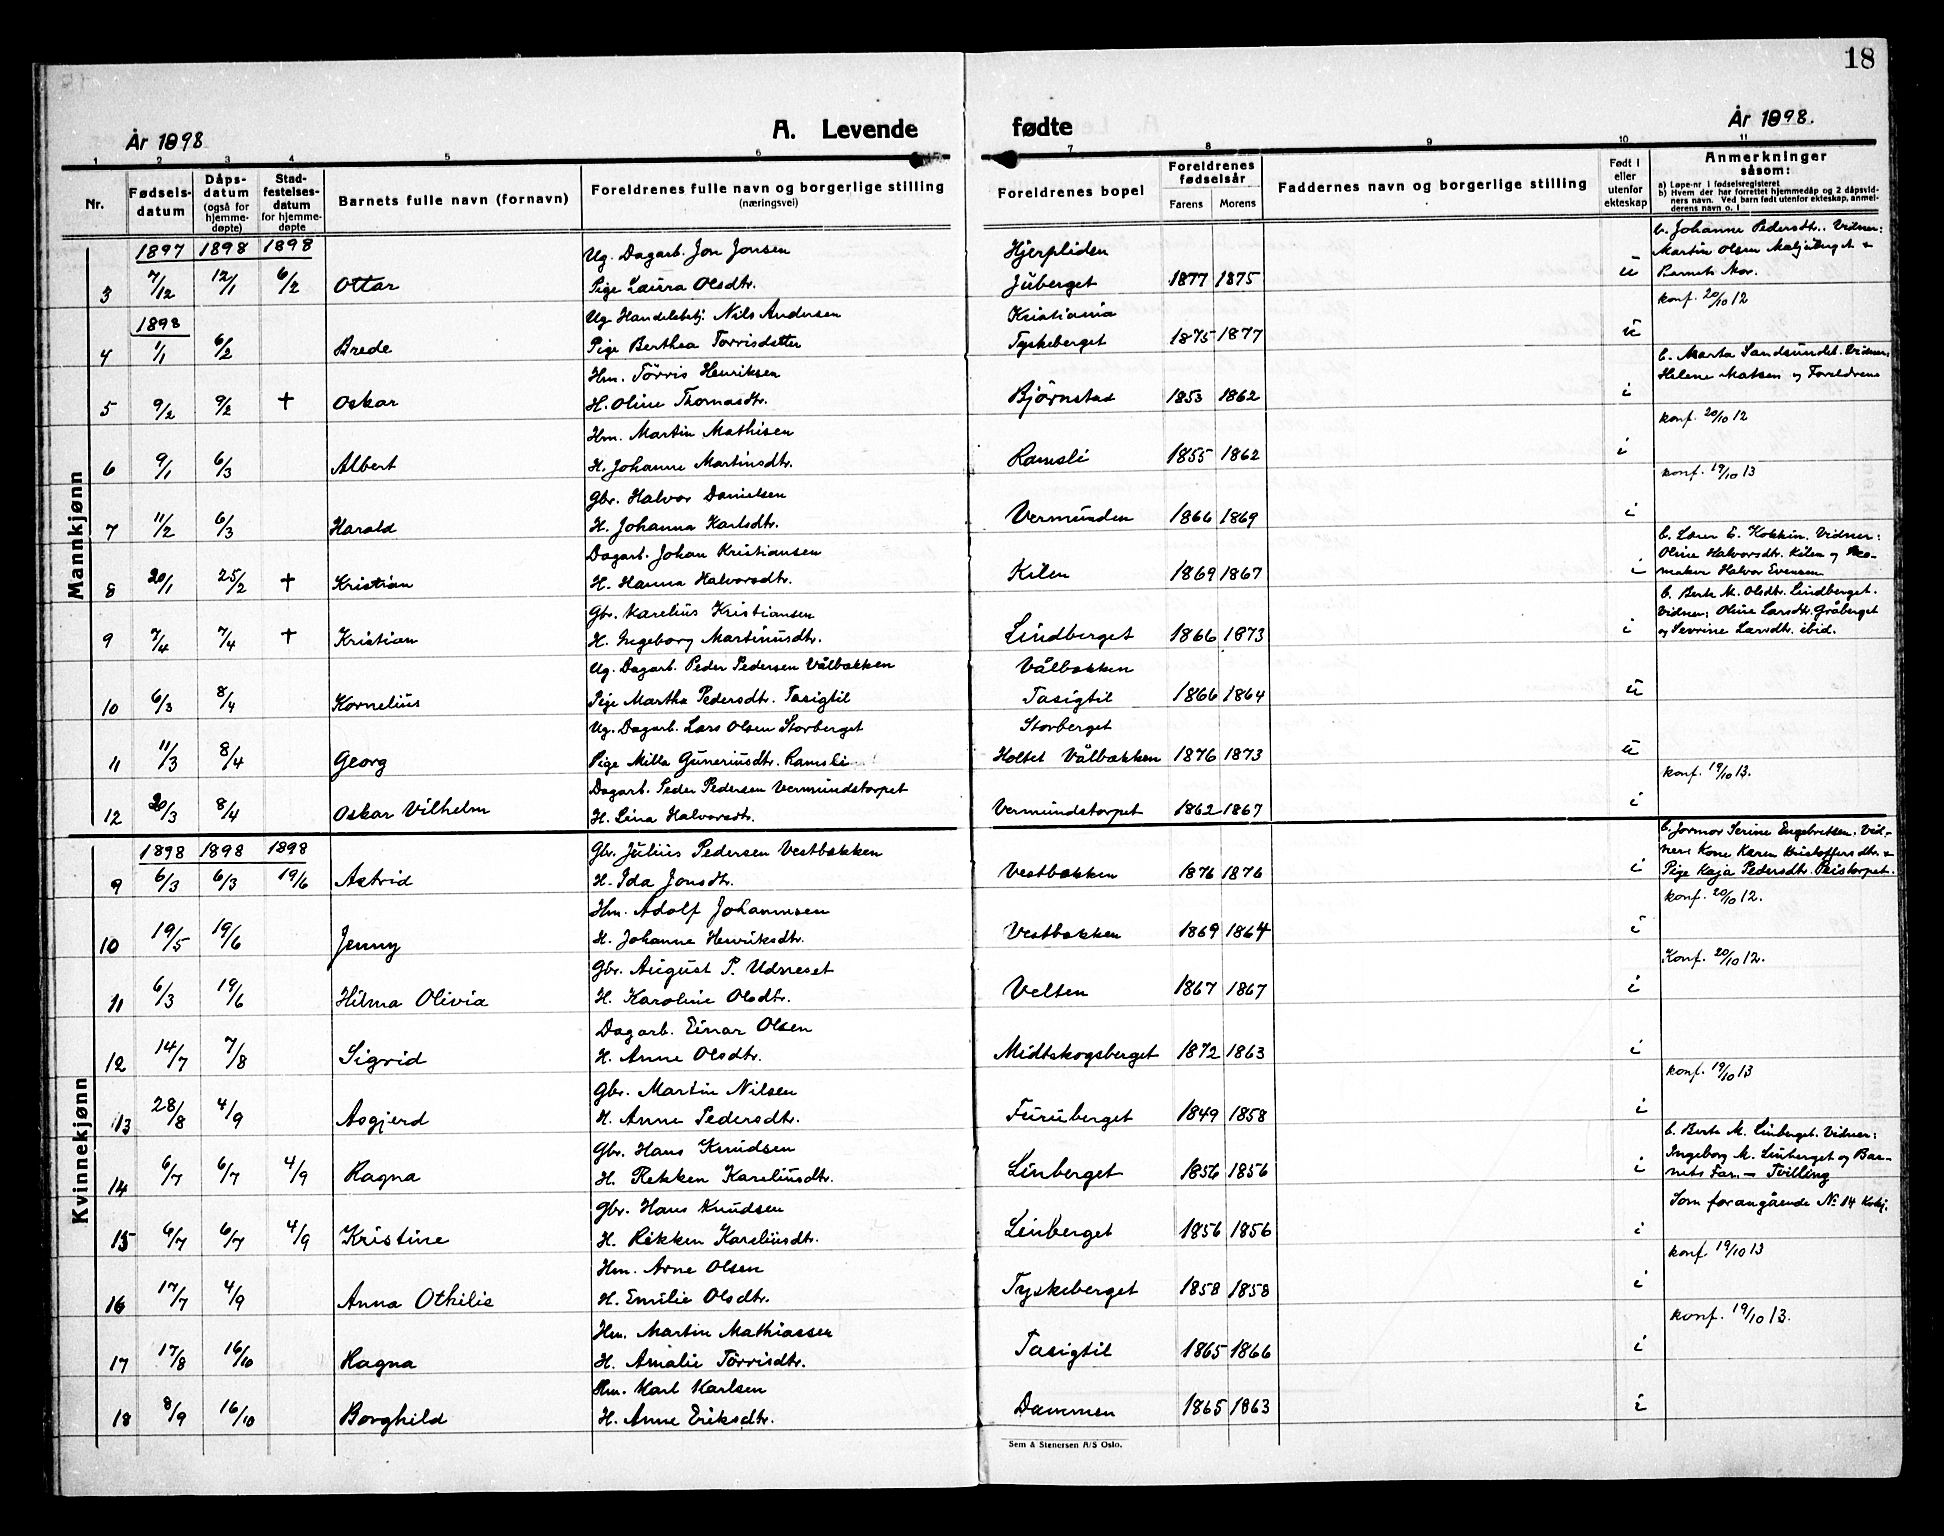 18
År 1898
A. Levende fødte
År 1898.
1 2 3 4 5 6 7 8 9 10 11
Nr. Fødsels-datum Dåps-datum (også for hjemme-døpte) Stad-festelses-datum for hjemme-døpte Barnets fulle navn (fornavn) Foreldrenes fulle navn og borgerlige stilling (næringsvei) Foreldrenes bopel Foreldrenes fødselsår Farens Morens Faddernes navn og borgerlige stilling Født i eller utenfor ekteskap Anmerkninger såsom:
a) Løpe-nr i fødselsregisteret
b) Hvem der har forrettet hjemmedåp og 2 dåpsvidners navn. Ved barn født utenfor ekteskap, anmelderens navn o. l
Mannkjønn
1897 1898 1898 Ug. Dagarb. Jon Jonsen Hjerpliden b. Johanne Pedersdtr. Vidner:
Martin Olsen Maljäberget &
3 7/12 12/1 6/2 Ottar Pige Laura Olsdtr. Juberget 1877 1875 u Barnets Mor.
1898 Ug. Handelsbetj. Nils Andersen Kristiania konf. 20/10 12
4 1/1 6/2 Brede Pige Berthea Torrisdatter Tyskeberget 1875 1877 u
Hm. Törris Henriksen b. Marta Sandsundet. Vidner:
Helene Matsen og Foreldrene
5 9/2 9/2 † Oskar H. Oline Thomasdtr. Bjørnstad 1853 1862 i
Hm. Martin Mathisen konf. 20/10 12
6 9/1 6/3 Albert H. Johanne Martinsdtr. Ramsli 1855 1862 i
Gbr. Halvor Danielsen konf. 19/10 13
7 11/2 6/3 Harald H. Johanna Karlsdtr. Vermunden 1866 1869 i
Dagarb. Johan Kristiansen b. Lærer E. Kokkin. Vidner:
Oline Halvorsdtr. Kilen og Sko-
8 20/1 25/2 † Kristian H. Hanna Halvorsdtr. Kilen 1869 1867 i maker Halvor Evensen
Gbr. Karelius Kristiansen b. Berte M. Olsdtr. Lindberget.
Vidner: Oline Larsdtr. Gråberget
9 7/4 7/4 † Kristian H. Ingeborg Martinusdtr. Lindberget 1866 1873 i og Sevrine Larsdtr. ibid.
Ug. Dagarb. Peder Pedersen Vålbakken Vålbakken
10 6/3 8/4 Kornelius Pige Martha Pedersdtr. Tasigtil Tasigtil 1866 1864 u
Ug. Dagarb. Lars Olsen Storberget Storberget
11 11/3 8/4 Georg Pige Milla Guneriusdtr. Ramsli Holtet Vålbakken 1876 1873 u
Dagarb. Peder Pedersen Vermundstorpet konf. 19/10 13.
12 20/3 8/4 Oskar Vilhelm H. Lina Halvorsdtr. Vermundstorpet 1862 1867 i
Kvinnekjønn
1898 1898 1898 Gbr. Julius Pedersen Vestbakken b. Jormor Serine Engebretsen. Vid-
ners Kone Karen Kristoffersdtr. &
9 6/3 6/3 19/6 Astrid H. Ida Jonsdtr. Vestbakken 1876 1876 i Pige Kaja Pedersdtr. Peistorpet.
Hm. Adolf Johannesen konf. 20/10 12.
10 19/5 19/6 Jenny H. Johanne Henriksdtr. Vestbakken 1869 1864 i
Gbr. August P. Udneset Konf. 20/10 12.
11 6/3 19/6 Hilma Olivia H. Karoline Olsdtr. Velten 1867 1867 i
Dagarb. Einar Olsen
12 14/7 7/8 Sigrid H. Anne Olsdtr. Midtskogsberget 1872 1863 i
Gbr. Martin Nilsen konf. 19/10 13
13 28/8 4/9 Asgjerd H. Anne Pedersdtr. Furuberget 1849 1858 i
Gbr. Hans Knudsen b. Berte M. Linberget. Vidner:
Ingeborg M. Linberget og Bar-
14 6/7 6/7 4/9 Ragna H. Rekken Kareliusdtr. Linberget 1856 1856 i nets Far. — Tvilling
Gbr. Hans Knudsen Som forangående No 14 Kvkj.
15 6/7 6/7 4/9 Kristine H. Rekken Kareliusdtr. Linberget 1856 1856 i
Hm. Arne Olsen konf. 19/10 13
16 17/7 4/9 Anna Othilie H. Emilie Olsdtr. Tyskeberget 1858 1858 i
Hm. Martin Mathiassen konf. 19/10 13.
17 17/8 16/10 Ragna H. Amalie Törrisdtr. Tasigtil 1865 1866 i
Hm. Karl Karlsen
18 8/9 16/10 Borghild H. Anne Eriksdtr. Dammen 1865 1863 i
Sem & Stenersen A/S Oslo.